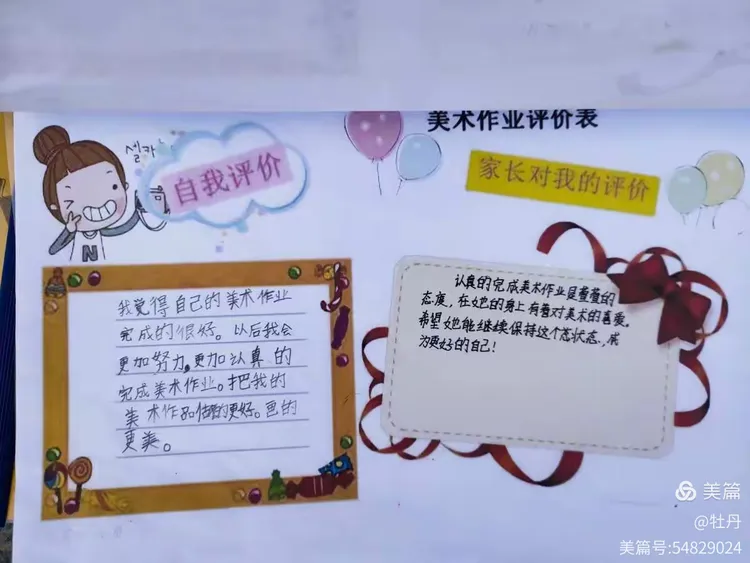 美术作业评价表
셀카
自我评价
我觉得自己的美术作业
完成的很好。以后我会
更加努力,更加认真的
完成美术作业。把我的
美术作品做的更好。画的
更美。
N
家长对我的评价
认真的完成美术作业是萱萱的
态度,在她的身上有着对美术的喜爱。
希望她能继续保持这个态状态,成
为更好的自己!
美篇
@牡丹
美篇号:54829024